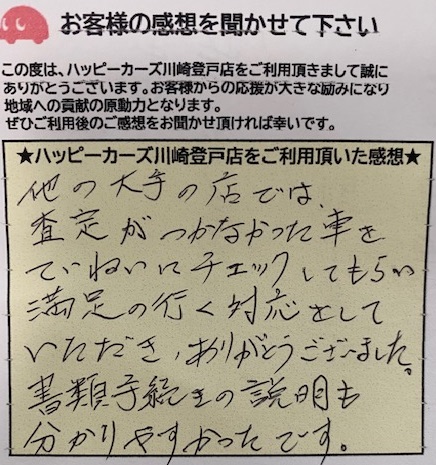 お客様の感想を聞かせて下さい
この度は、ハッピーカーズ川崎登戸店をご利用頂きまして誠に
ありがとうございます。お客様からの応援が大きな励みになり
地域への貢献の原動力となります。
ぜひご利用後のご感想をお聞かせ頂ければ幸いです。
★ハッピーカーズ川崎登戸店をご利用頂いた感想★
他の大手の店では、
査定がつかなかった車を
ていねいにチェックしてもらい
満足の行く対応をして
いただき、ありがとうございました。
書類手続きの説明も
分かりやすかったです。